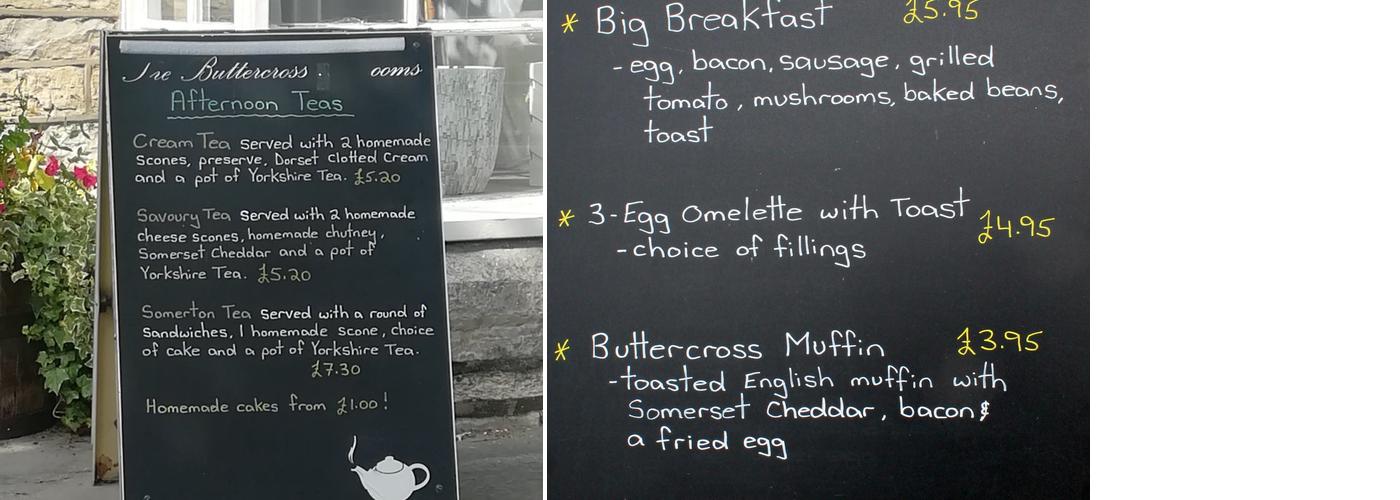 The Buttercross ooms
Afternoon Teas
Cream Tea Served with 2 homemade
Scones, preserve, Dorset Clotted Cream
and a pot of Yorkshire Tea. £5.20
Savoury Tea Served with 2 homemade
cheese scones, homemade chutney,
Somerset Cheddar and a pot of
Yorkshire Tea. £5.20
Somerton Tea Served with a round of
Sandwiches, 1 homemade scone, choice
of cake and a pot of Yorkshire Tea.
£7.30
Homemade cakes from £1.00!
* Big Breakfast £5.95
- egg, bacon, sausage, grilled
tomato, mushrooms, baked beans,
toast
* 3-Egg Omelette with Toast £4.95
- choice of fillings
* Buttercross Muffin £3.95
- toasted English muffin with
Somerset Cheddar, bacon &
a fried egg